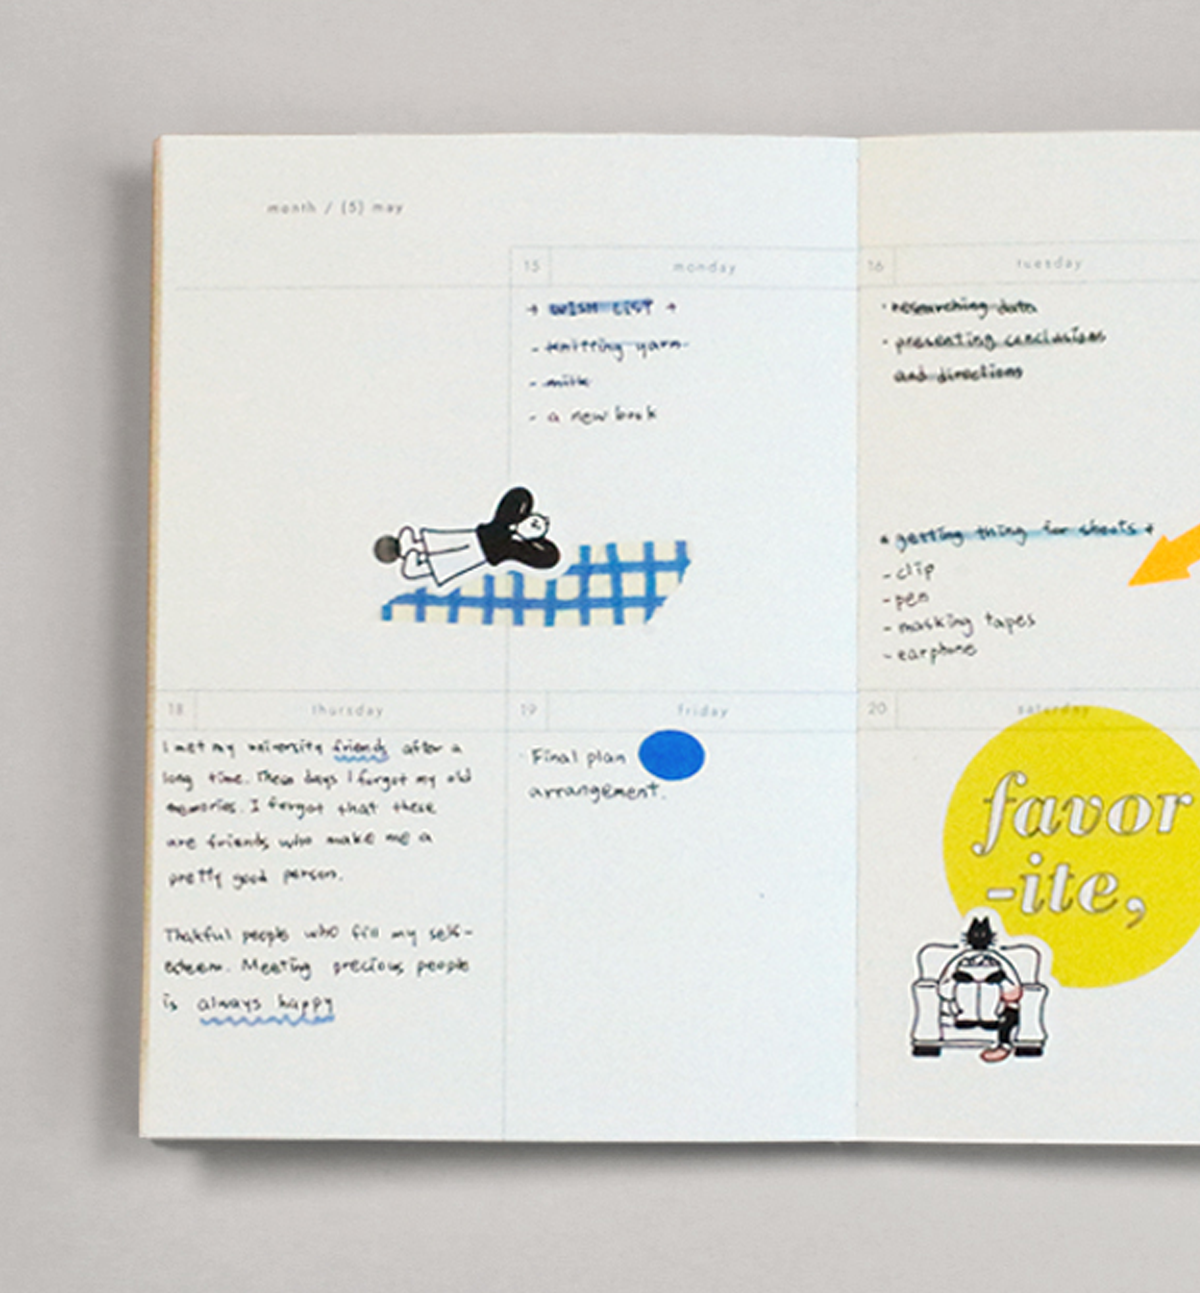 month / (5) may
15 monday
+ WISH LIST +
- knitting yarn
- milk
- a new book
16 tuesday
· researching data
- presenting conclusions
and directions
* getting thing for shoots *
- clip
- pen
- masking tapes
- earphone
18 thursday
I met my university friends after a
long time. These days I forgot my old
memories. I forgot that these
are friends who make me a
pretty good person.
Thakful people who fill my self-
esteem. Meeting precious people
is always happy
19 friday
· Final plan
arrangement.
20 saturday
favor
-ite,